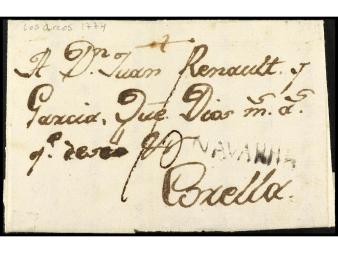 Los Arcos 1774
A Dn. Juan Renault. y
Garcia, Que Dios ms. as.
qe. deseo
NAVARRA
Corella.